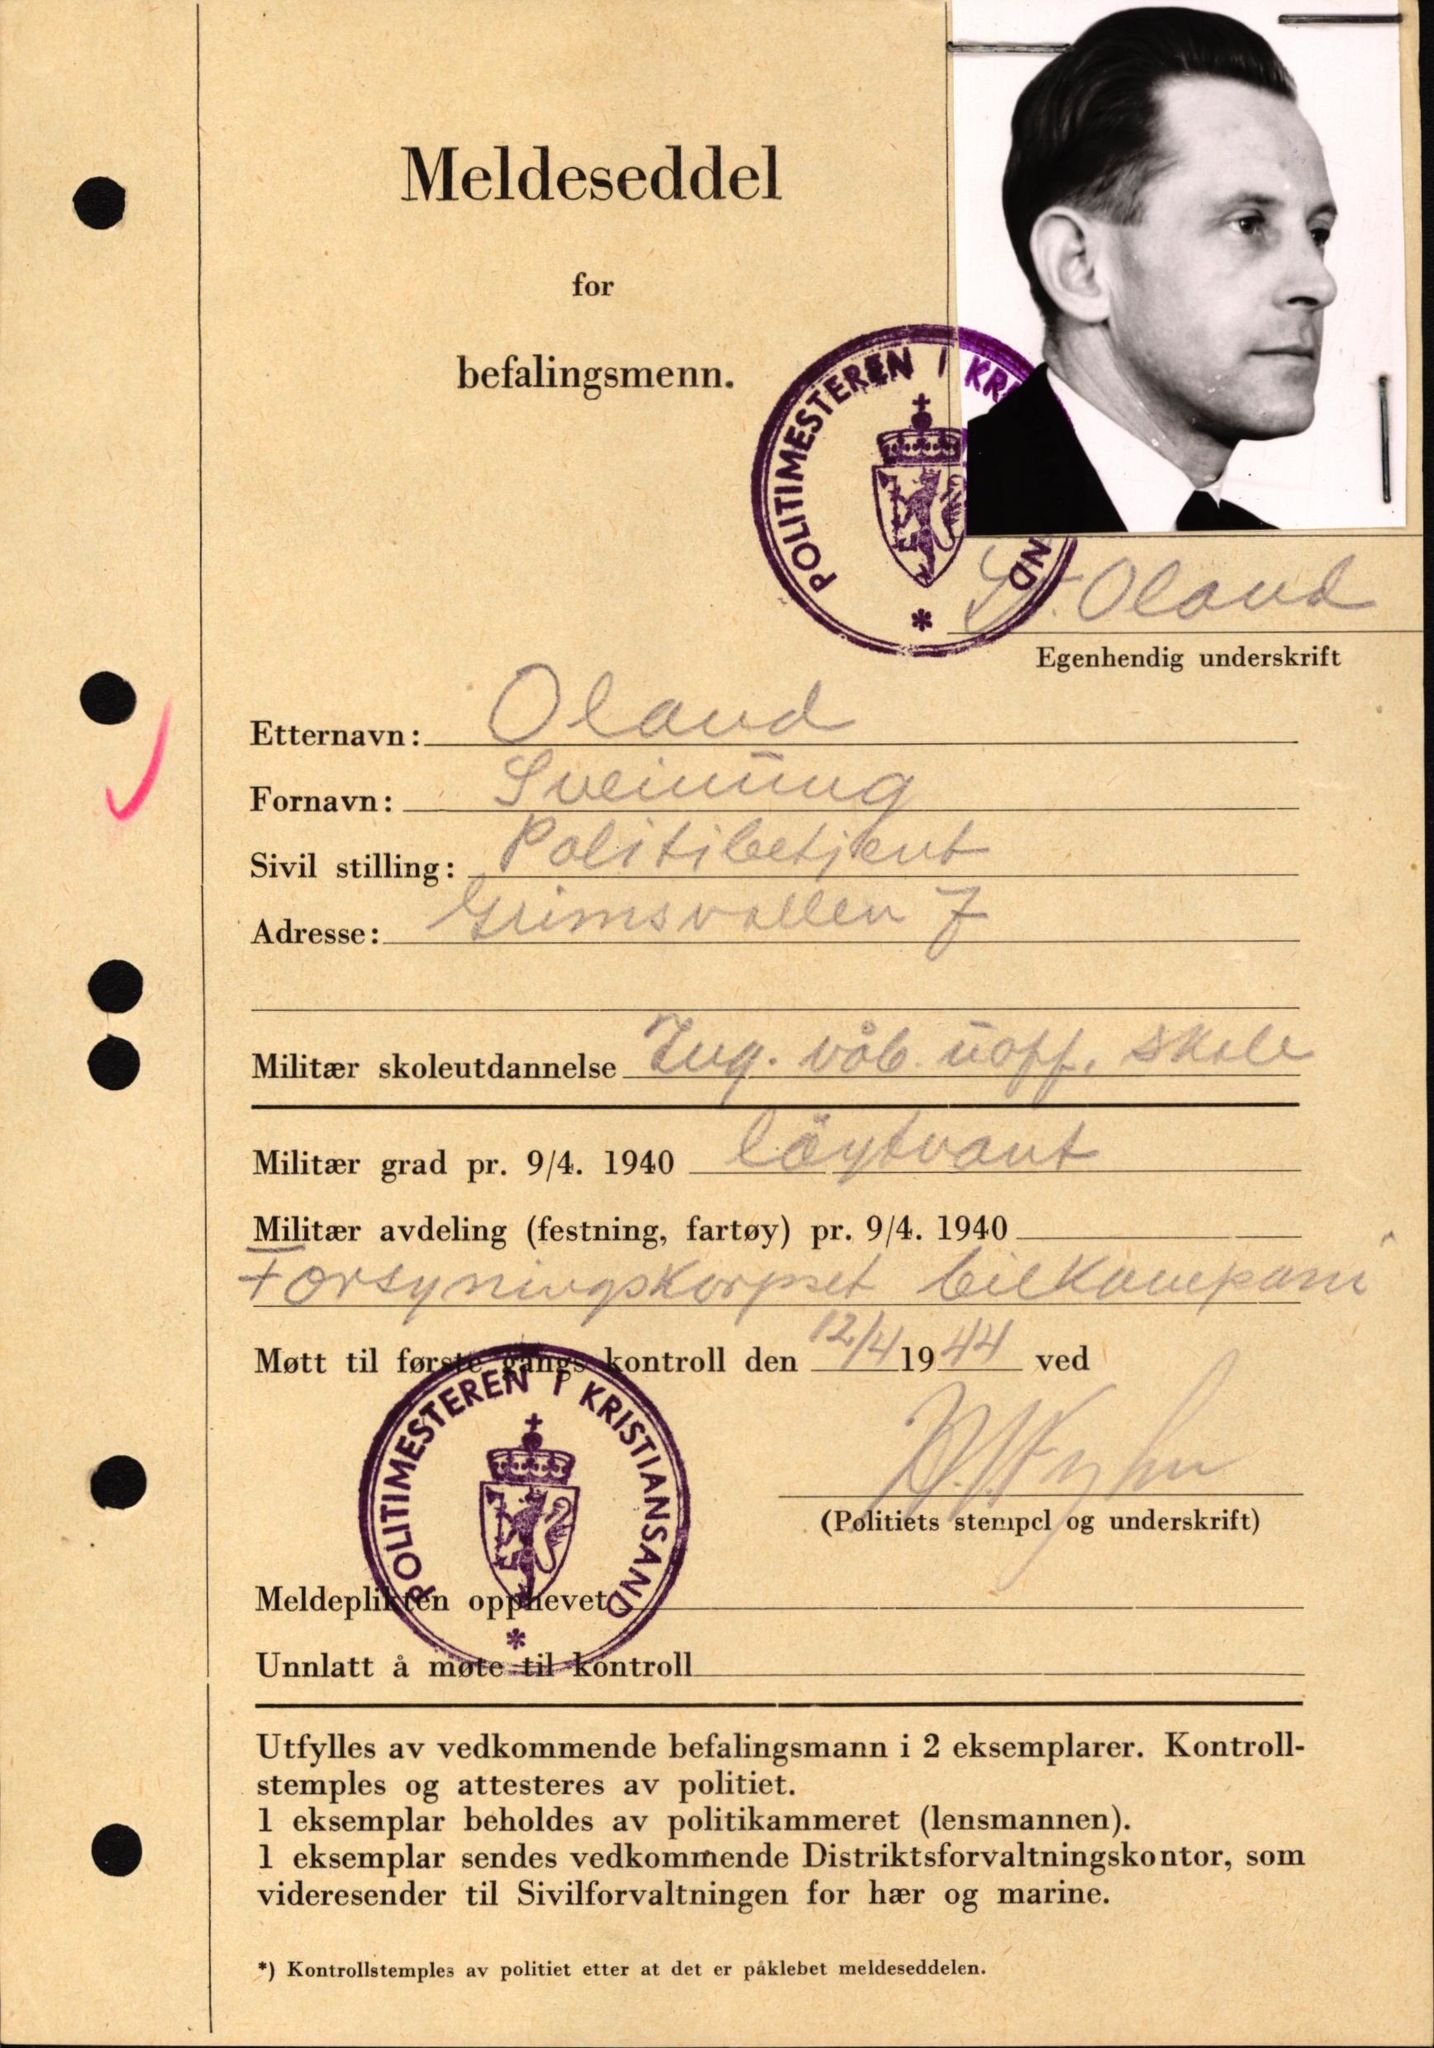 Meldeseddel
for
befalingsmenn.
POLITIMESTEREN I KR ND *
Oland
Egenhendig underskrift
Etternavn: Oland
Fornavn: Sveinung
Sivil stilling: Politibetjent
Adresse: Grimsvollen 7
Militær skoleutdannelse Ing. våb. uoff. skole
Militær grad pr. 9/4. 1940 löytnant
Militær avdeling (festning, fartøy) pr. 9/4. 1940
Forsyningskorpset bilkompani
Møtt til første gangs kontroll den 12/4 1944 ved
POLITIMESTEREN I KRISTIANSAND *
(Politiets stempel og underskrift)
Meldeplikten opphevet
Unnlatt å møte til kontroll
Utfylles av vedkommende befalingsmann i 2 eksemplarer. Kontroll-
stemples og attesteres av politiet.
1 eksemplar beholdes av politikammeret (lensmannen).
1 eksemplar sendes vedkommende Distriktsforvaltningskontor, som
videresender til Sivilforvaltningen for hær og marine.
*) Kontrollstemples av politiet etter at det er påklebet meldeseddelen.